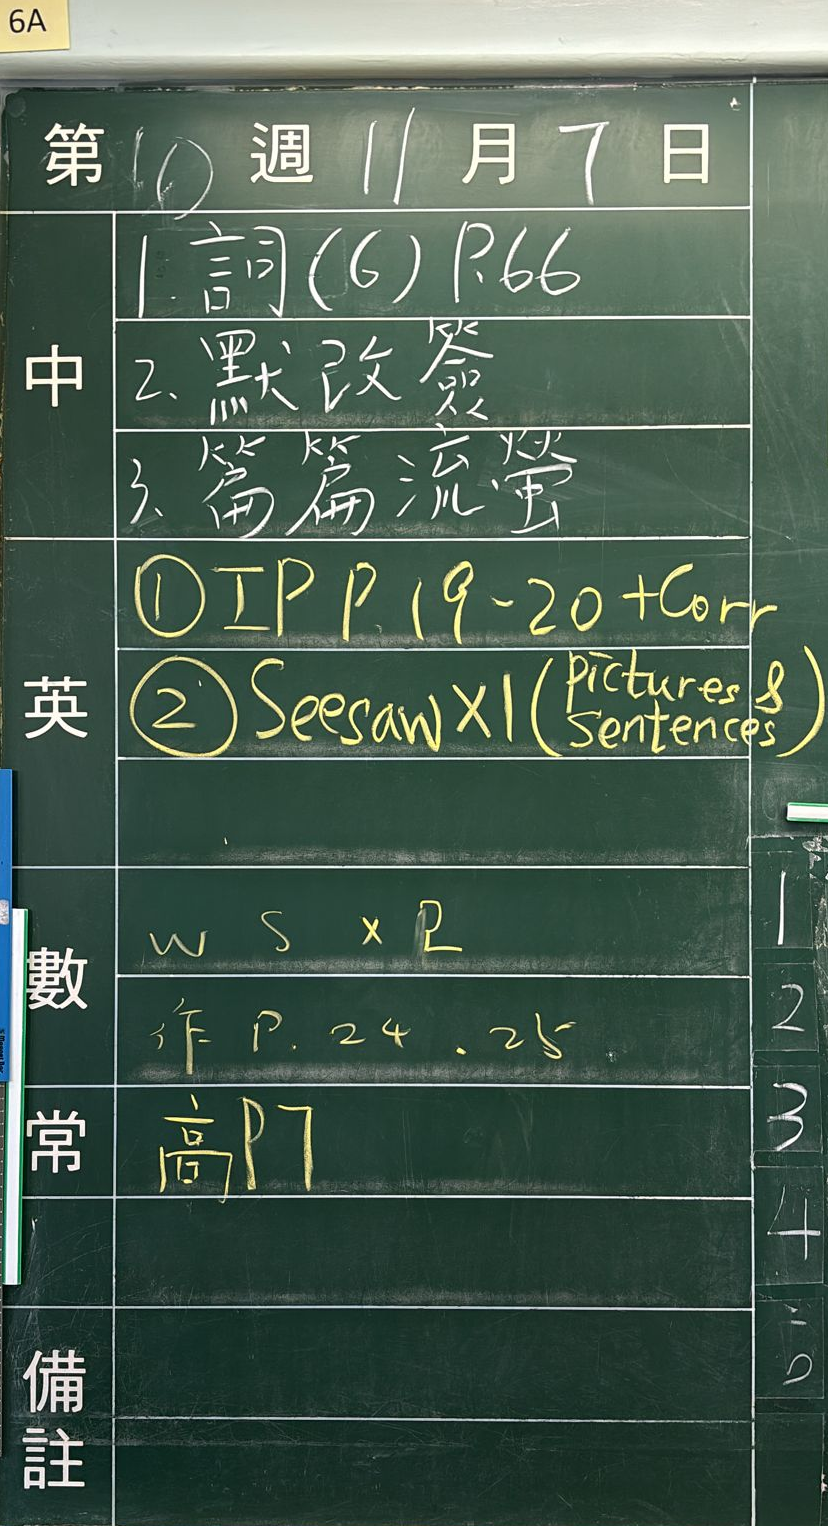 6A
第10週11月7日
中
1. 詞(6) P.66
2. 默改簽
3. 篇篇流螢
英
① IP P.19-20 +Corr
② Seesaw X1 (pictures & sentences)
數
W S x 2
作 P. 24 . 25
常
高P7
備註
1
2
3
4